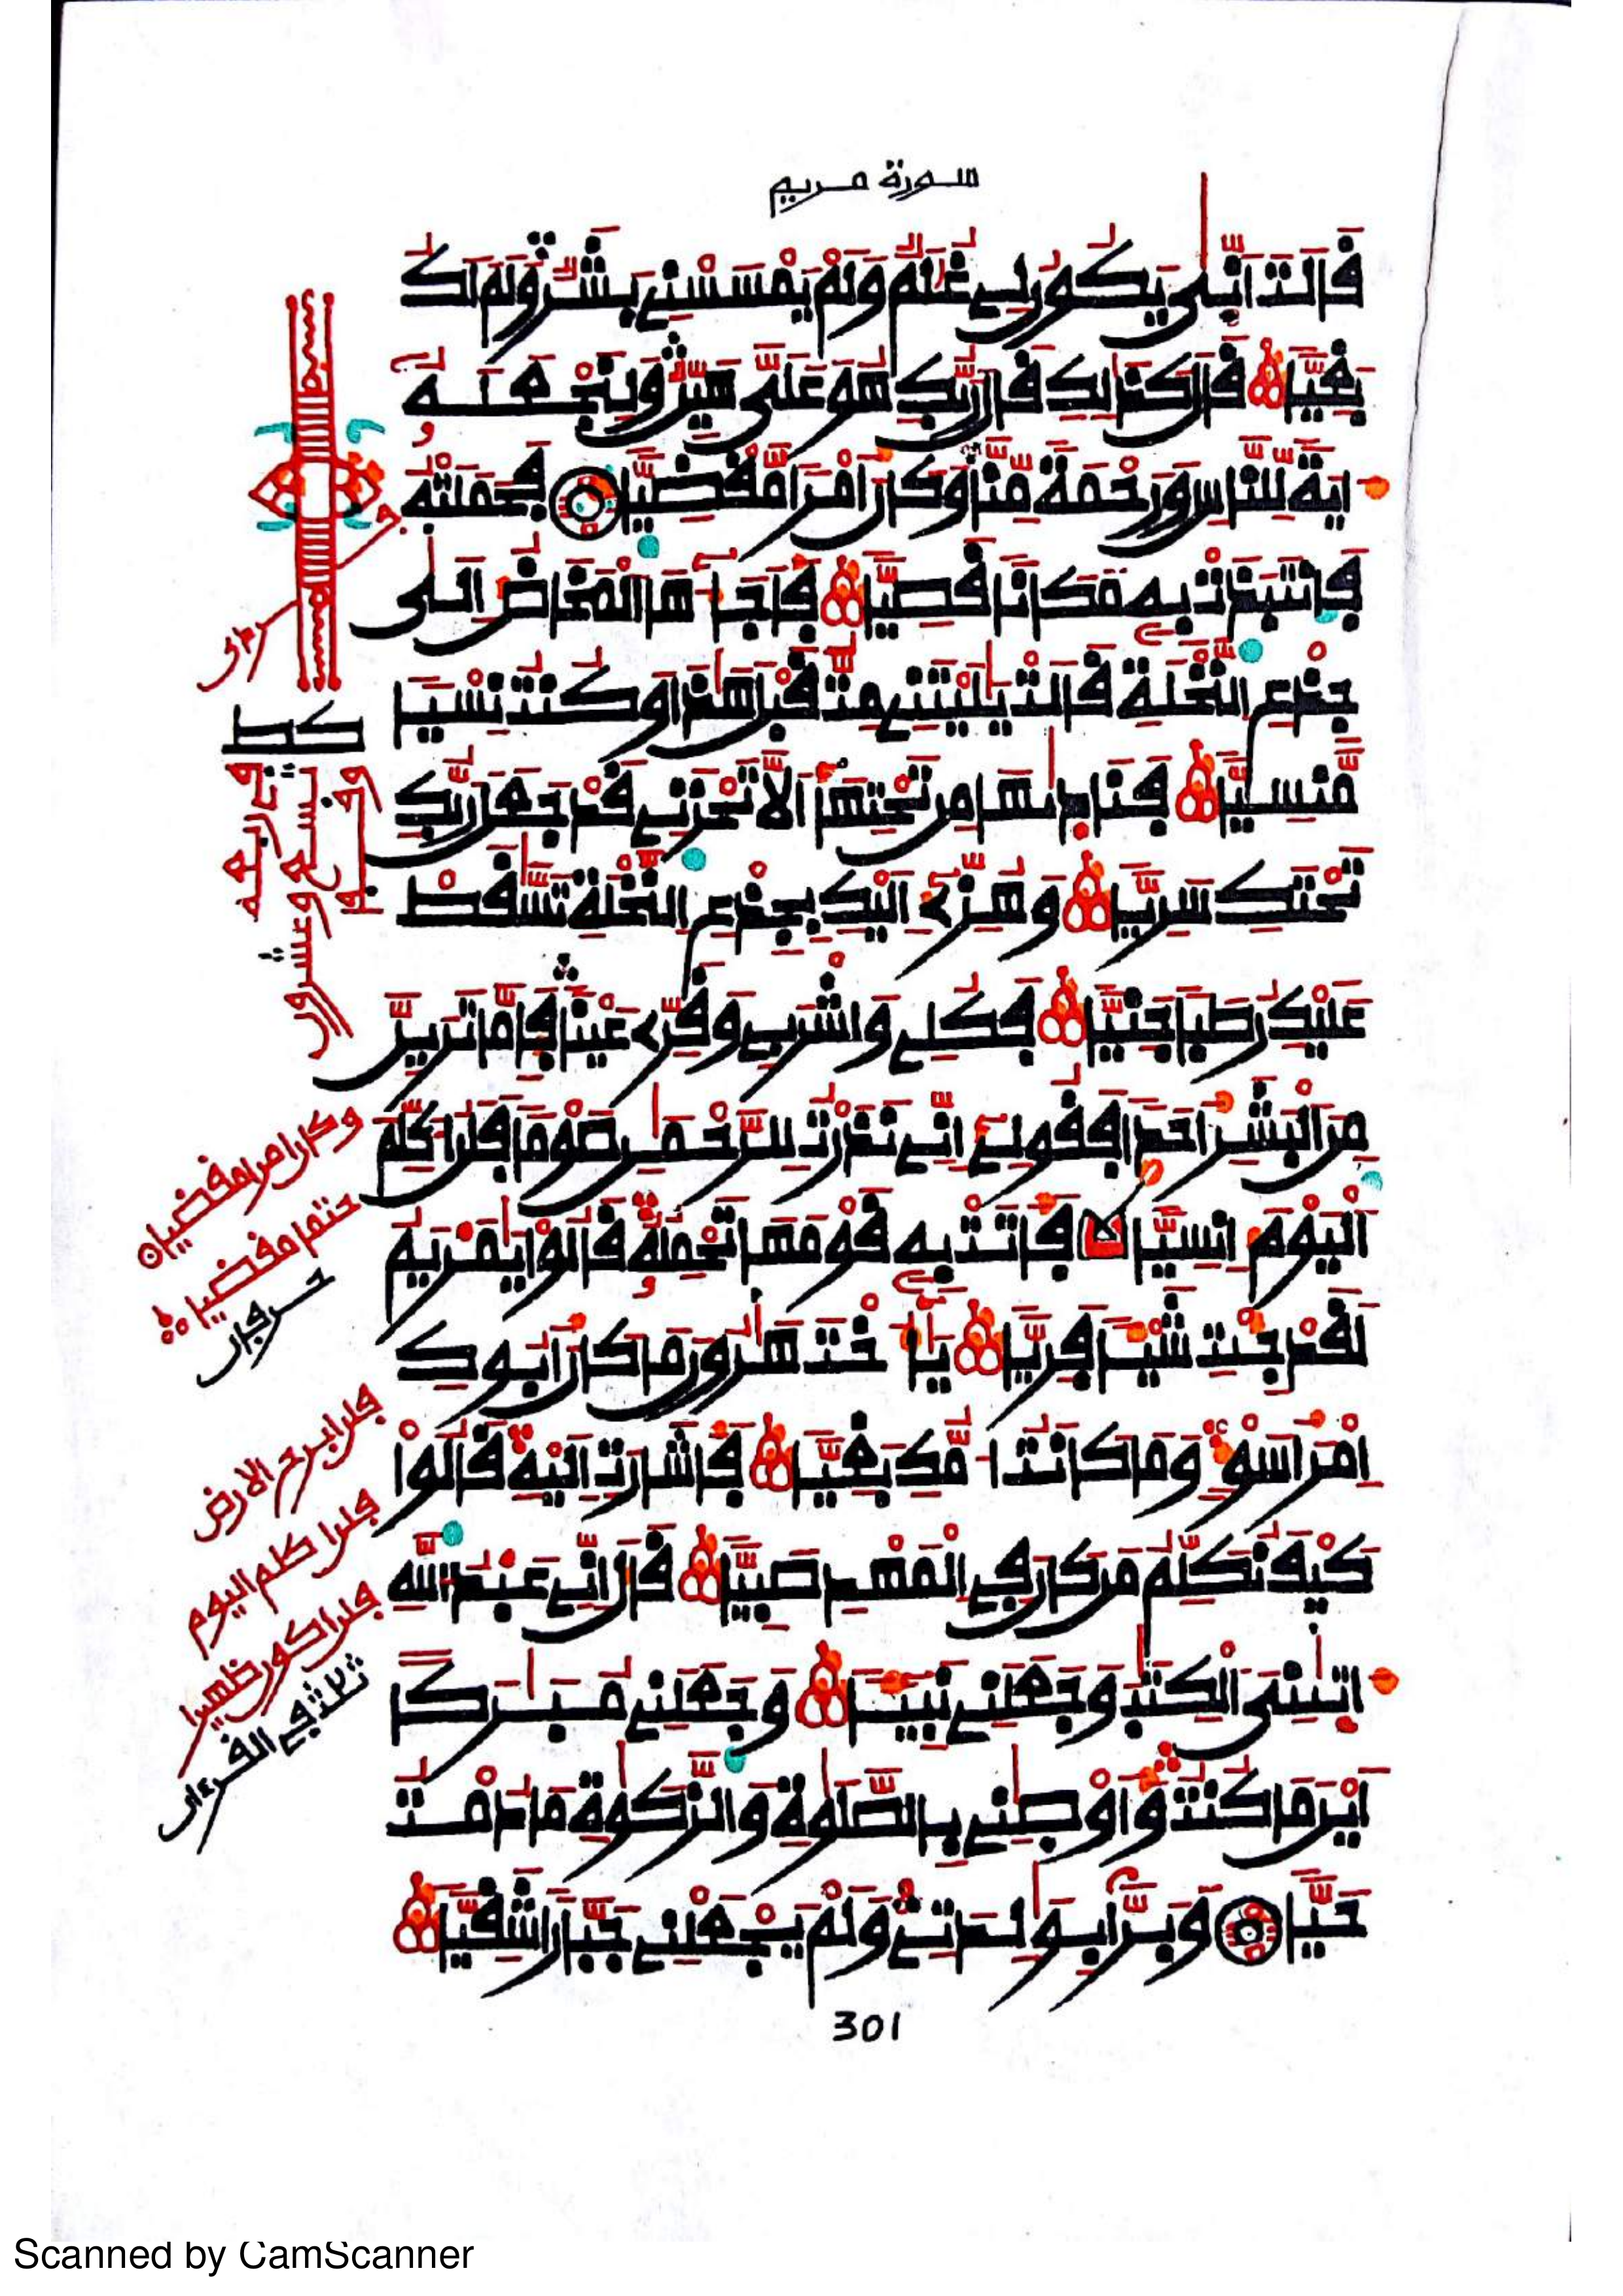 سورة مريم
قَالَتْ أَنّٰى يَكُونُ لِے غُلَٰمٞ وَلَمْ يَمْسَسْنِے بَشَرٞ وَلَمَ اَكُ
بَغِيّٗا قَالَ كَذَٰلِكِ قَالَ رَبُّكِ هُوَ عَلَيَّ هَيِّنٞ وَلِنَجْعَلَهُۥ
ءَايَةٗ لِّلنَّاسِ وَرَحْمَةٗ مِّنَّا وَكَانَ أَمْرٗا مَّقْضِيّٗا فَحَمَلَتْهُ
فَانتَبَذَتْ بِهِۦ مَكَانٗا قَصِيّٗا فَأَجَآءَهَا اَلْمَخَاضُ إِلَىٰ
جِذْعِ اِلنَّخْلَةِ قَالَتْ يَٰلَيْتَنِے مِتُّ قَبْلَ هَٰذَا وَكُنتُ نِسْيٗا
مَّنسِيّٗا فَنَادَىٰهَا مِن تَحْتِهَآ أَلَّا تَحْزَنِے قَدْ جَعَلَ رَبُّكِ
تَحْتَكِ سَرِيّٗا وَهُزِّے إِلَيْكِ بِجِذْعِ اِلنَّخْلَةِ تَسَّٰقَطْ
عَلَيْكِ رُطَبٗا جَنِيّٗا فَكُلِے وَاشْرَبِے وَقَرِّے عَيْنٗا فَإِمَّا تَرَيِنَّ
مِنَ اَلْبَشَرِ أَحَدٗا فَقُولِےٓ إِنِّے نَذَرْتُ لِلرَّحْمَٰنِ صَوْمٗا فَلَنُ اكَلِّمَ
اَلْيَوْمَ إِنسِيّٗا فَأَتَتْ بِهِۦ قَوْمَهَا تَحْمِلُهُۥ قَالُواْ يَٰمَرْيَمُ
لَقَدْ جِئْتِ شَيْـٔٗا فَرِيّٗا يَٰٓأُخْتَ هَٰرُونَ مَا كَانَ أَبُوكِ
اِمْرَأَ سَوْءٖ وَمَا كَانَتُ امُّكِ بَغِيّٗا فَأَشَارَتِ اِلَيْهِ قَالُواْ
كَيْفَ نُكَلِّمُ مَن كَانَ فِي اِلْمَهْدِ صَبِيّٗا قَالَ إِنِّے عَبْدُ اُللَّهِ
ءَاتَىٰنِيَ اَلْكِتَٰبَ وَجَعَلَنِے نَبِيٓـٔٗا وَجَعَلَنِے مُبَٰرَكًا
اَيْنَ مَا كُنتُ وَأَوْصَٰنِے بِالصَّلَوٰةِ وَالزَّكَوٰةِ مَا دُمْتُ
حَيّٗا وَبَرّٗا بِوَٰلِدَتِے وَلَمْ يَجْعَلْنِے جَبَّارٗا شَقِيّٗا
كط
وكان امرا مقضيا
حتما مقضيا
حرفان
فلن ابرح الارض
فلن اكلم اليوم
فلن اكون ظهيرا
ثلاث في القرءان
301
Scanned by CamScanner